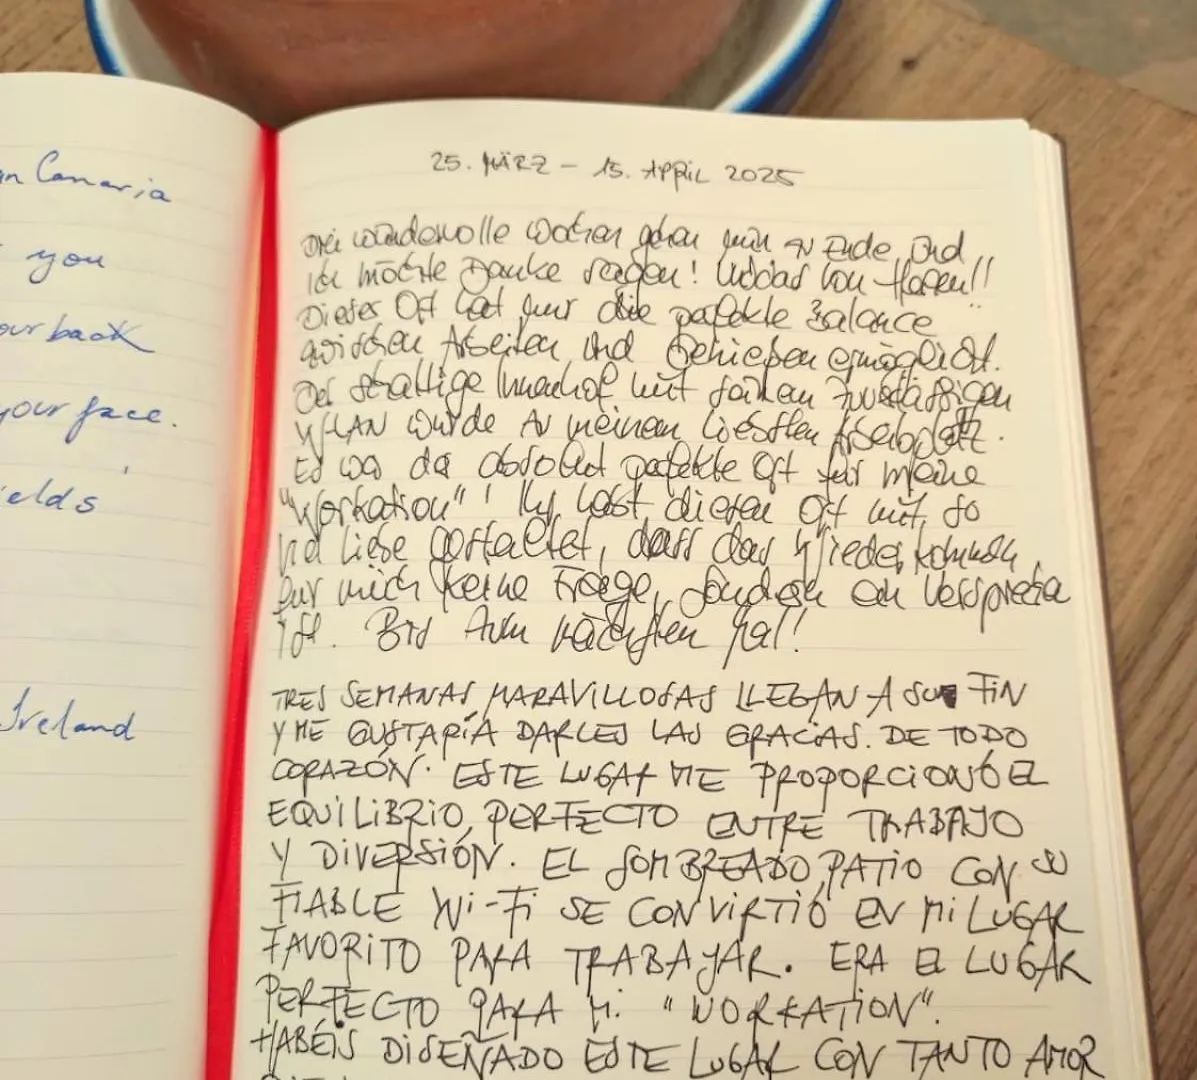 n Canaria
you
our back
your face.
ields
Ireland
25. MÄRZ – 15. APRIL 2025
Drei wundervolle Wochen gehen nun zu Ende und
ich möchte Danke sagen! von Herzen!!
Dieser Ort hat mir die perfekte Balance
zwischen Arbeiten und Genießen ermöglicht.
Der schattige Innenhof mit seinem zuverlässigen
WLAN wurde zu meinem liebsten Arbeitsplatz.
Es war der absolut perfekte Ort für meine
"Workation"! Ihr habt diesen Ort mit so
viel Liebe gestaltet, dass das Wiederkommen
für mich keine Frage, sondern ein Versprechen
ist. Bis zum nächsten Mal!
TRES SEMANAS MARAVILLOSAS LLEGAN A SU FIN
Y ME GUSTARÍA DARLES LAS GRACIAS. DE TODO
CORAZÓN. ESTE LUGAR ME PROPORCIONÓ EL
EQUILIBRIO PERFECTO ENTRE TRABAJO
Y DIVERSIÓN. EL SOMBREADO PATIO CON SU
FIABLE WI-FI SE CONVIRTIÓ EN MI LUGAR
FAVORITO PARA TRABAJAR. ERA EL LUGAR
PERFECTO PARA MI "WORKATION".
HABÉIS DISEÑADO ESTE LUGAR CON TANTO AMOR